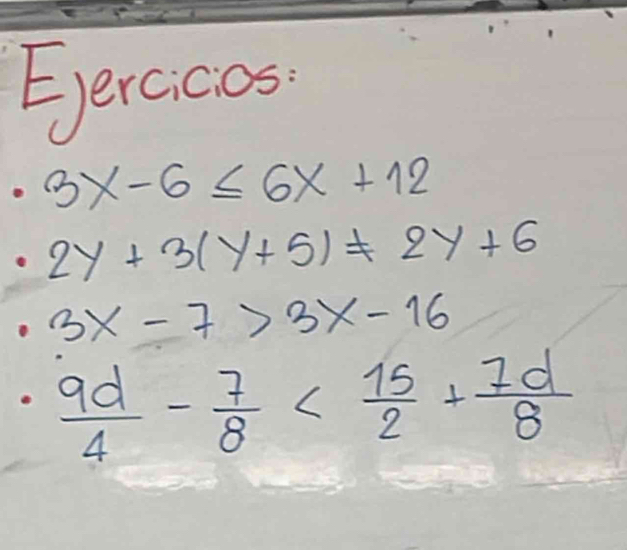 Ejercicios:
• 3x - 6 ≤ 6x + 12
• 2y + 3(y + 5) ≠ 2y + 6
• 3x - 7 > 3x - 16
• 9d/4 - 7/8 < 15/2 + 7d/8